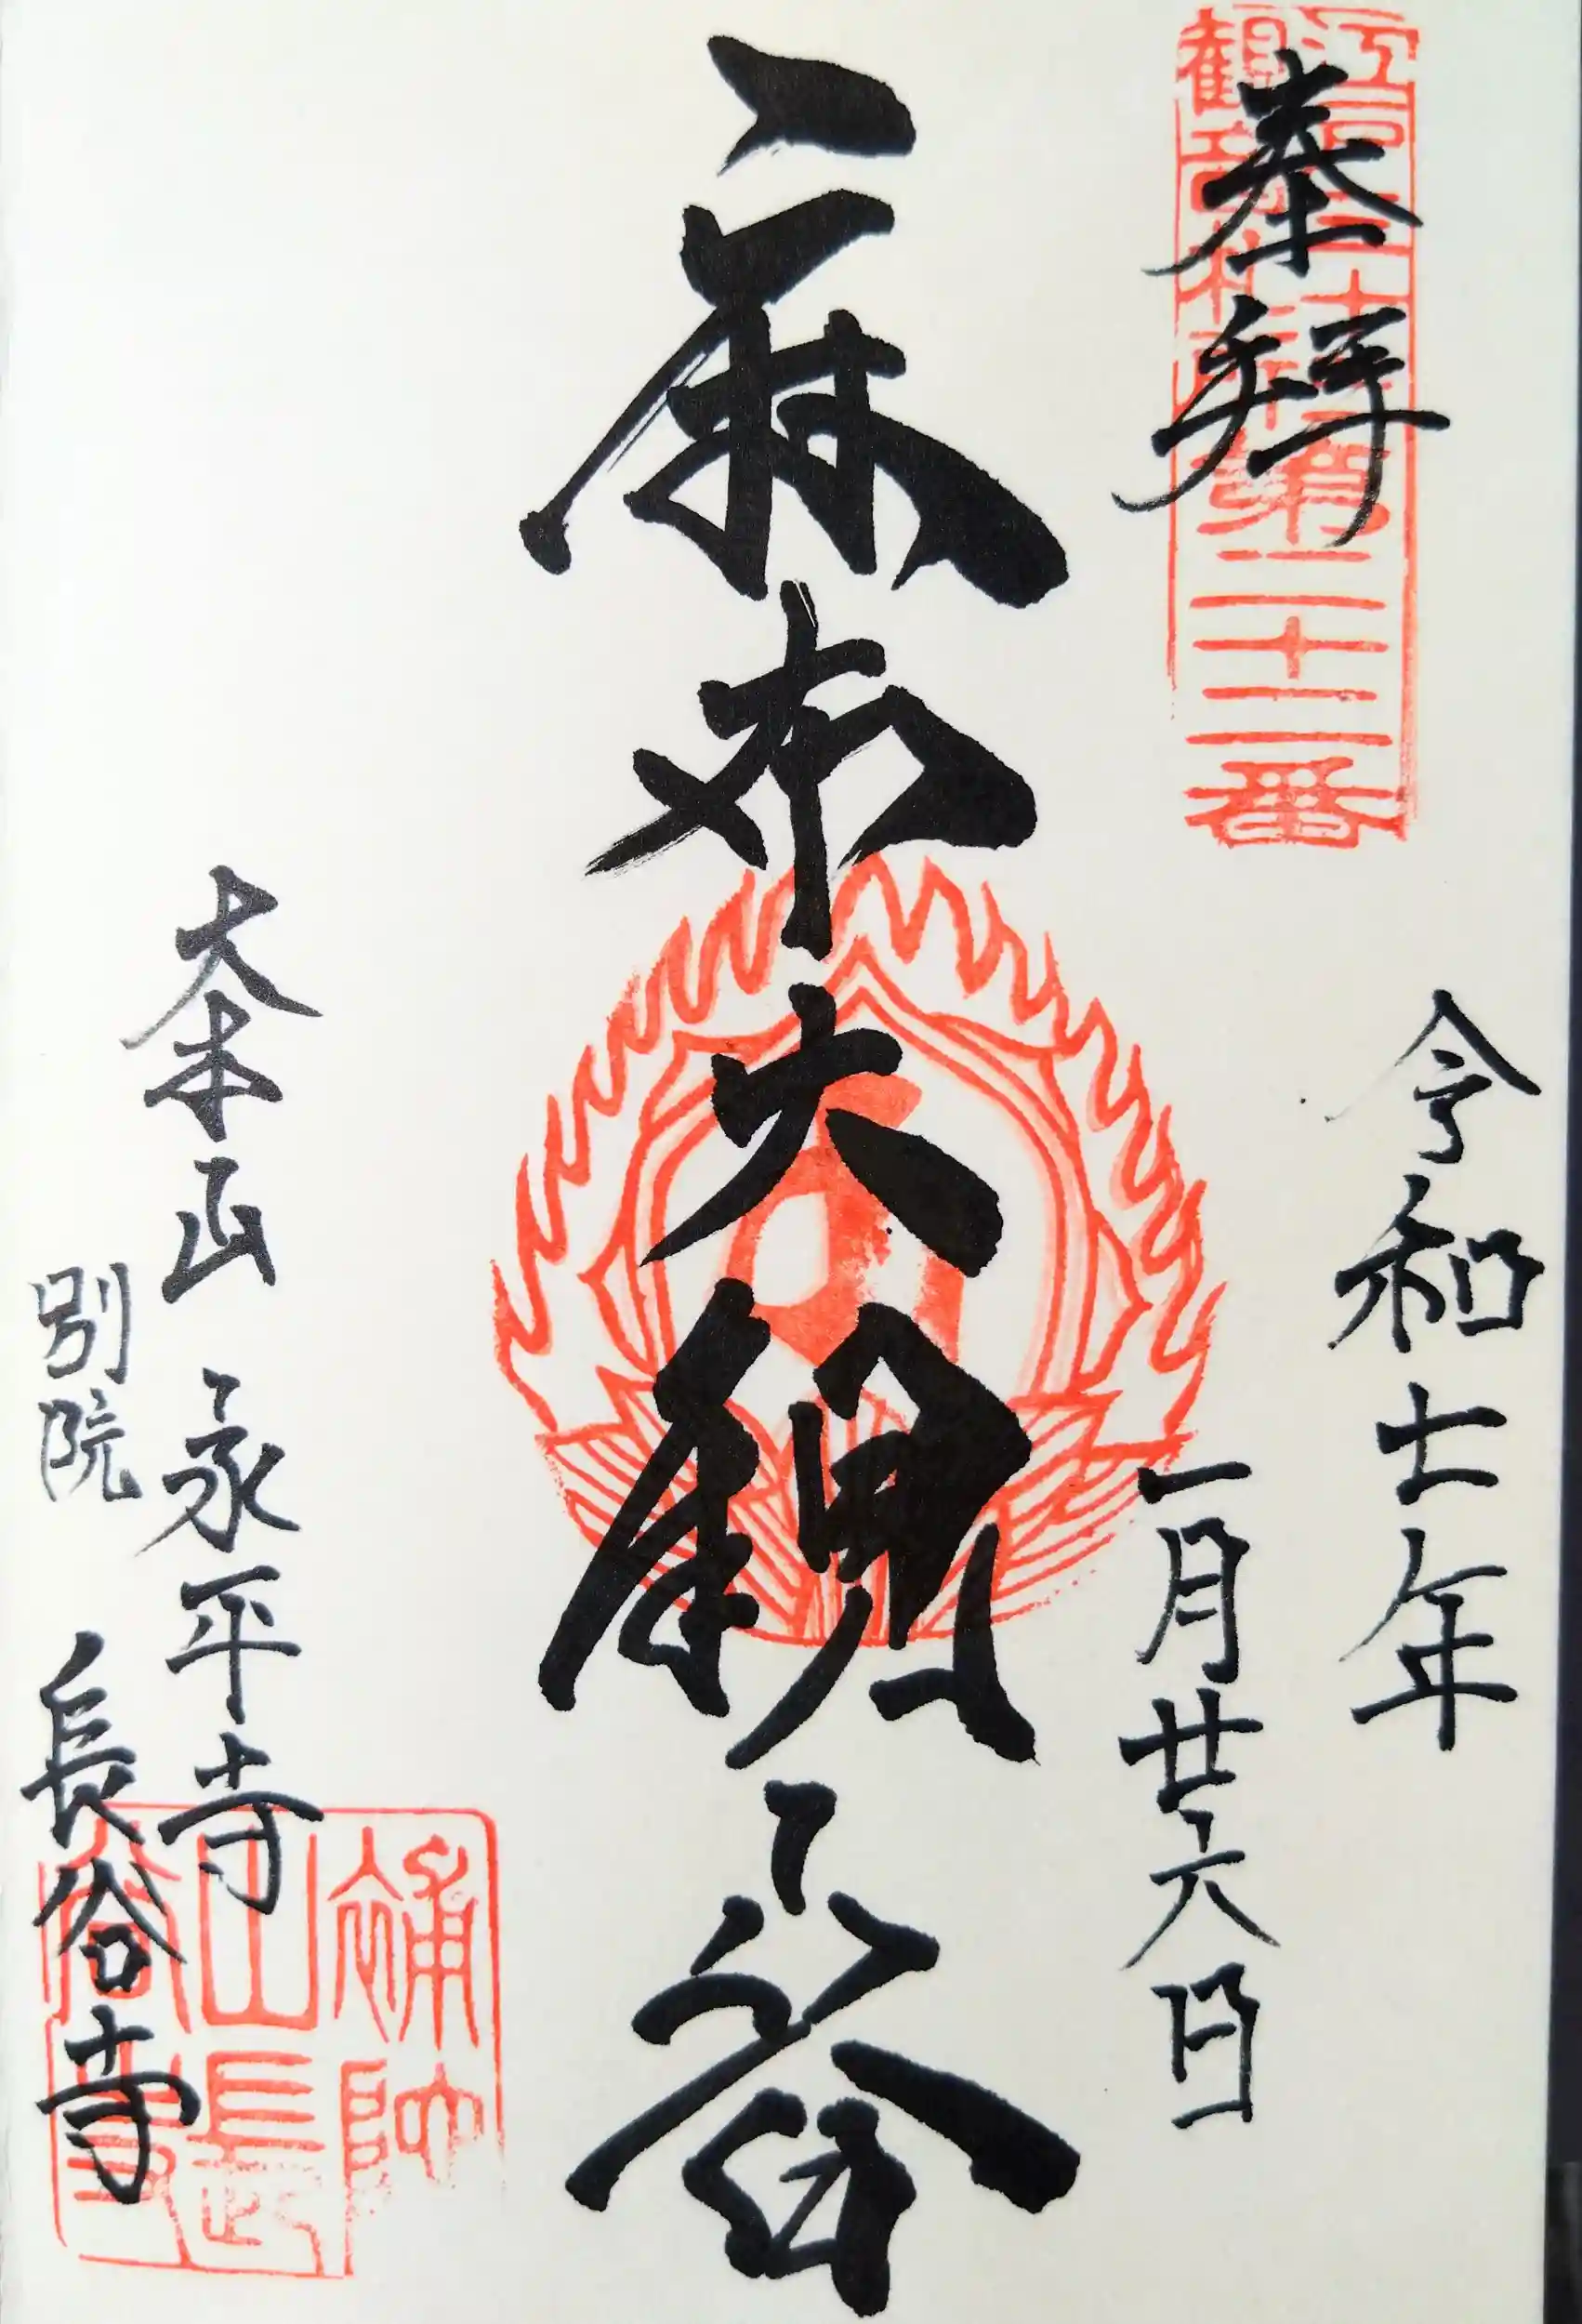 江戸三十三
観音札所
第二十二番
奉拝
令和七年
一月廿六日
麻布大観音
大本山 永平寺
別院 長谷寺
補陀
山長
谷寺